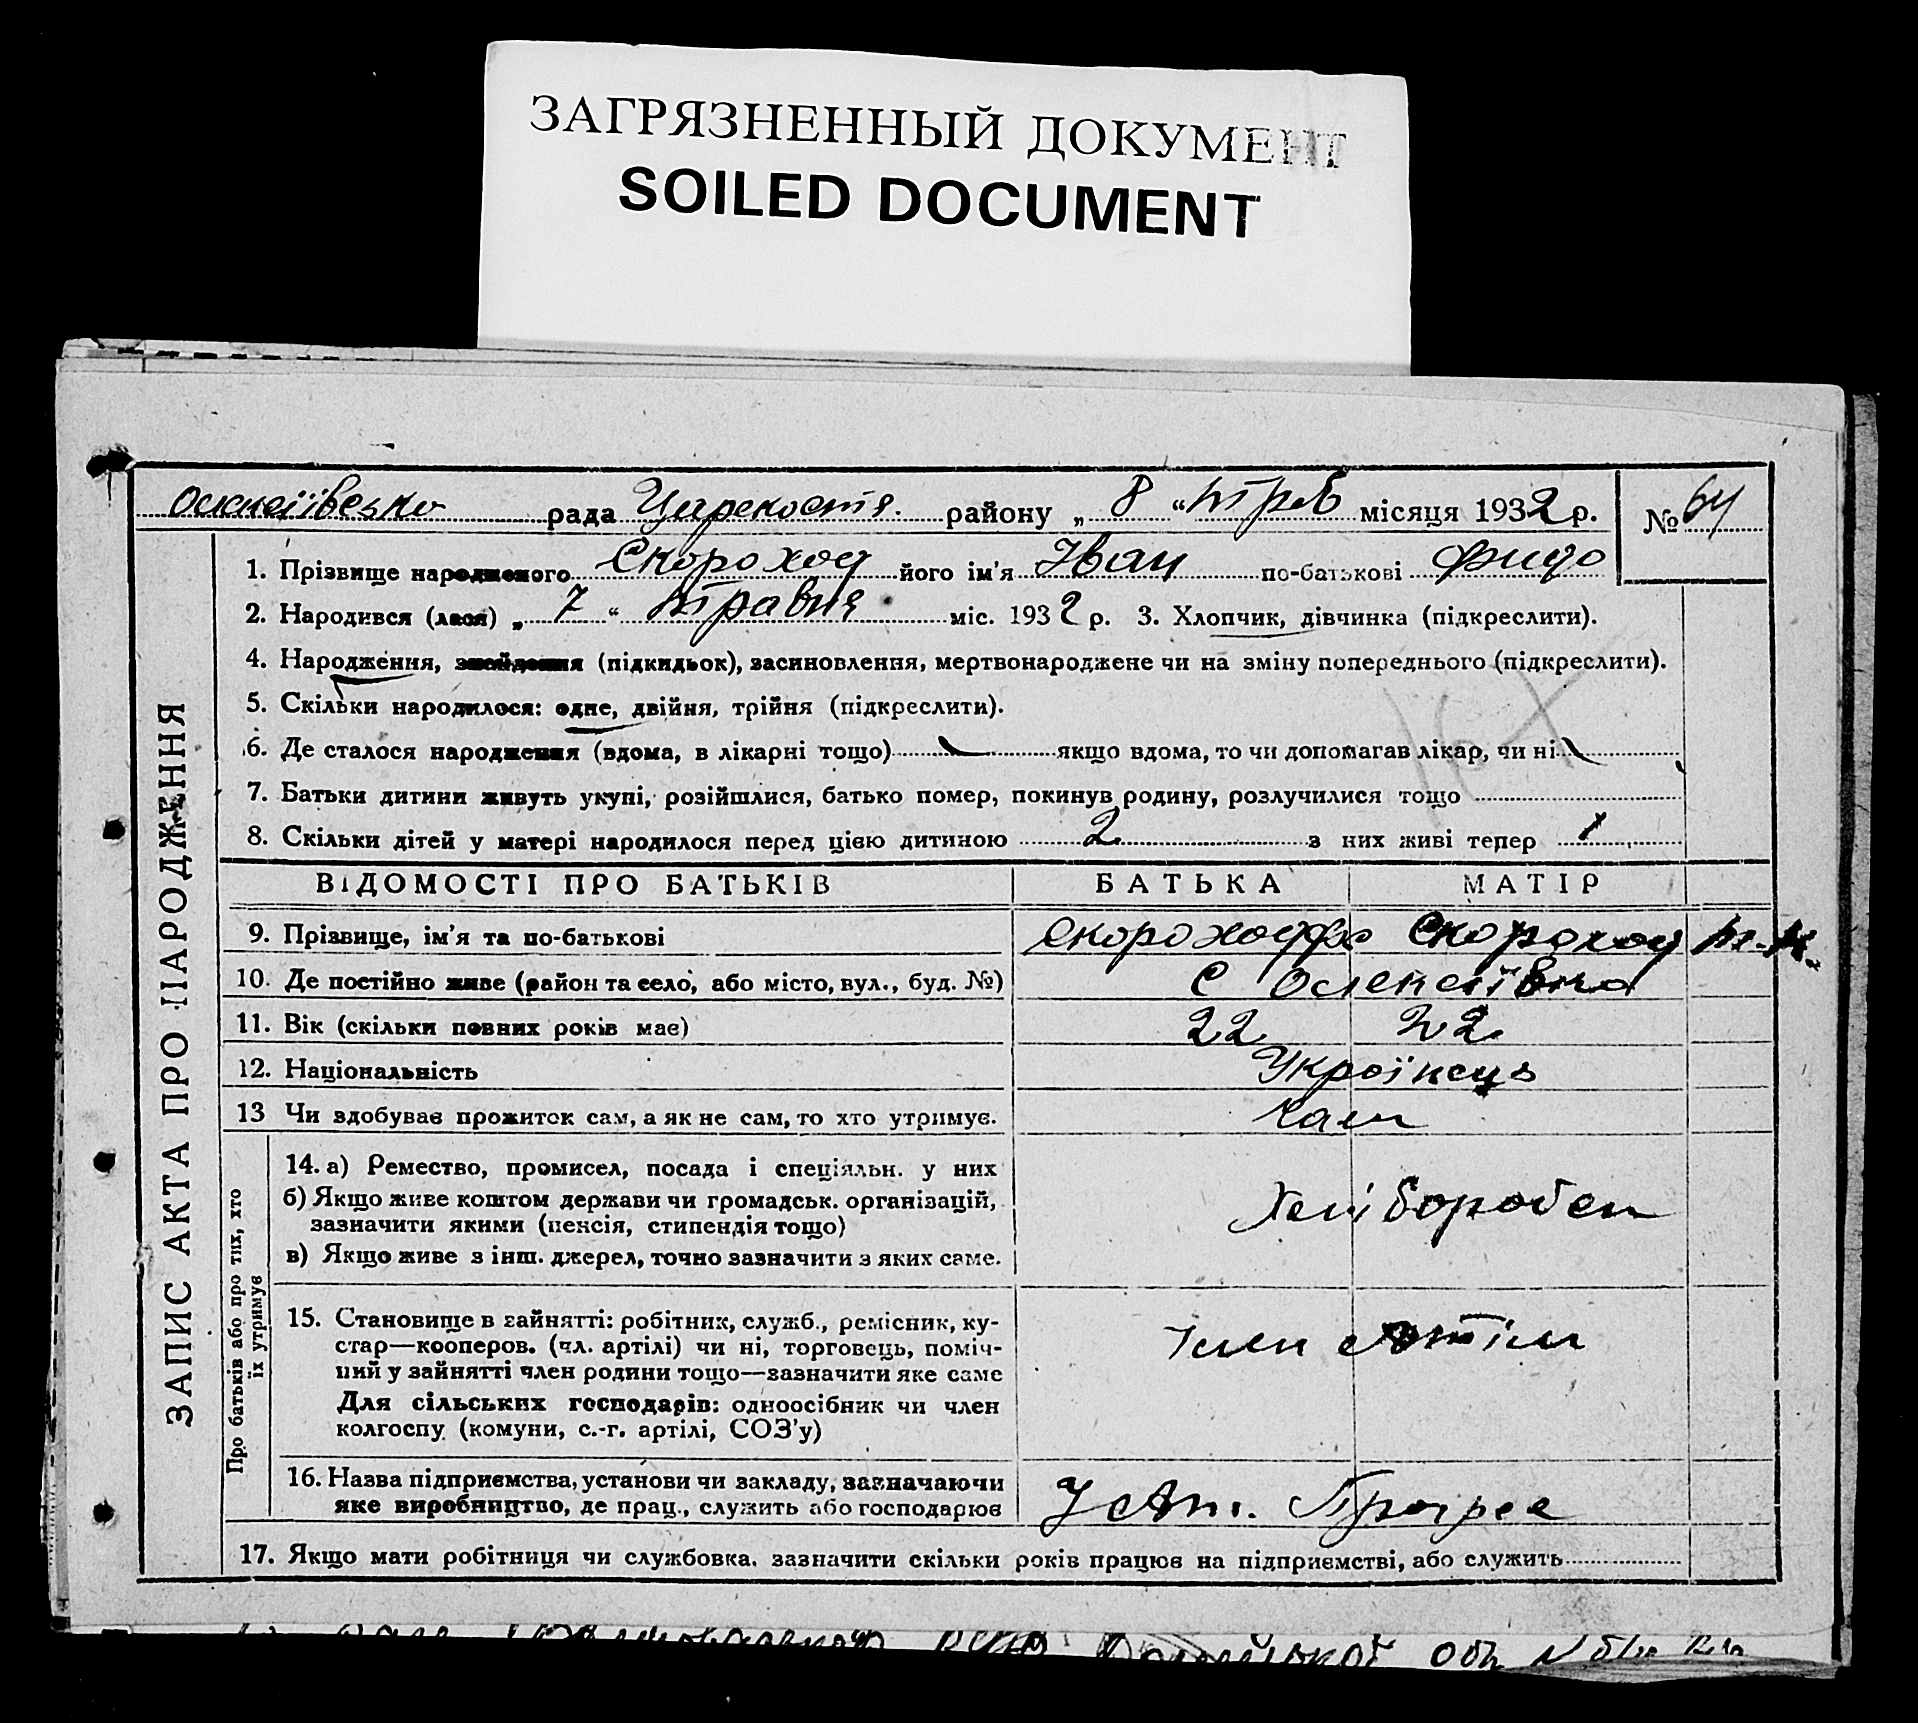 ЗАГРЯЗНЕННЫЙ ДОКУМЕНТ
SOILED DOCUMENT
рада району „ 8 “ місяця 1932 р. № 64
1. Прізвище народженого Скороход його ім'я Іван по-батькові
2. Народився (лася) „ 7 “ травня міс. 1932 р. 3. Хлопчик, дівчинка (підкреслити).
4. Народження, знайдення (підкидьок), засиновлення, мертвонароджене чи на зміну попереднього (підкреслити).
5. Скільки народилося: одне, двійня, трійня (підкреслити).
6. Де сталося народження (вдома, в лікарні тощо) якщо вдома, то чи допомагав лікар, чи ні
7. Батьки дитини живуть укупі, розійшлися, батько помер, покинув родину, розлучилися тощо
8. Скільки дітей у матері народилося перед цією дитиною 2 з них живі тепер 1
ВІДОМОСТІ ПРО БАТЬКІВ БАТЬКА МАТІР
9. Прізвище, ім'я та по-батькові Скороход
10. Де постійно живе (район та село, або місто, вул., буд. №) с Олексіївка
11. Вік (скільки повних років має) 22 22
12. Національність Українець
13 Чи здобуває прожиток сам, а як не сам, то хто утримує. Сам
14. а) Ремество, промисел, посада і спеціяльн. у них
б) Якщо живе коштом держави чи громадськ. організацій,
зазначити якими (пенсія, стипендія тощо)
в) Якщо живе з інш. джерел, точно зазначити з яких саме.
Хліборобен
15. Становище в зайнятті: робітник, служб., ремісник, ку-
стар—кооперов. (чл. артілі) чи ні, торговець, поміч-
ний у зайнятті член родини тощо—зазначити яке саме
Для сільських господарів: одноосібник чи член
колгоспу (комуни, с.-г. артілі, СОЗ'у)
член
16. Назва підприємства, установи чи закладу, зазначаючи
яке виробництво, де прац., служить або господарює
17. Якщо мати робітниця чи службовка, зазначити скільки років працює на підприємстві, або служить
ЗАПИС АКТА ПРО НАРОДЖЕННЯ
Про батьків або про тих, хто
їх утримує